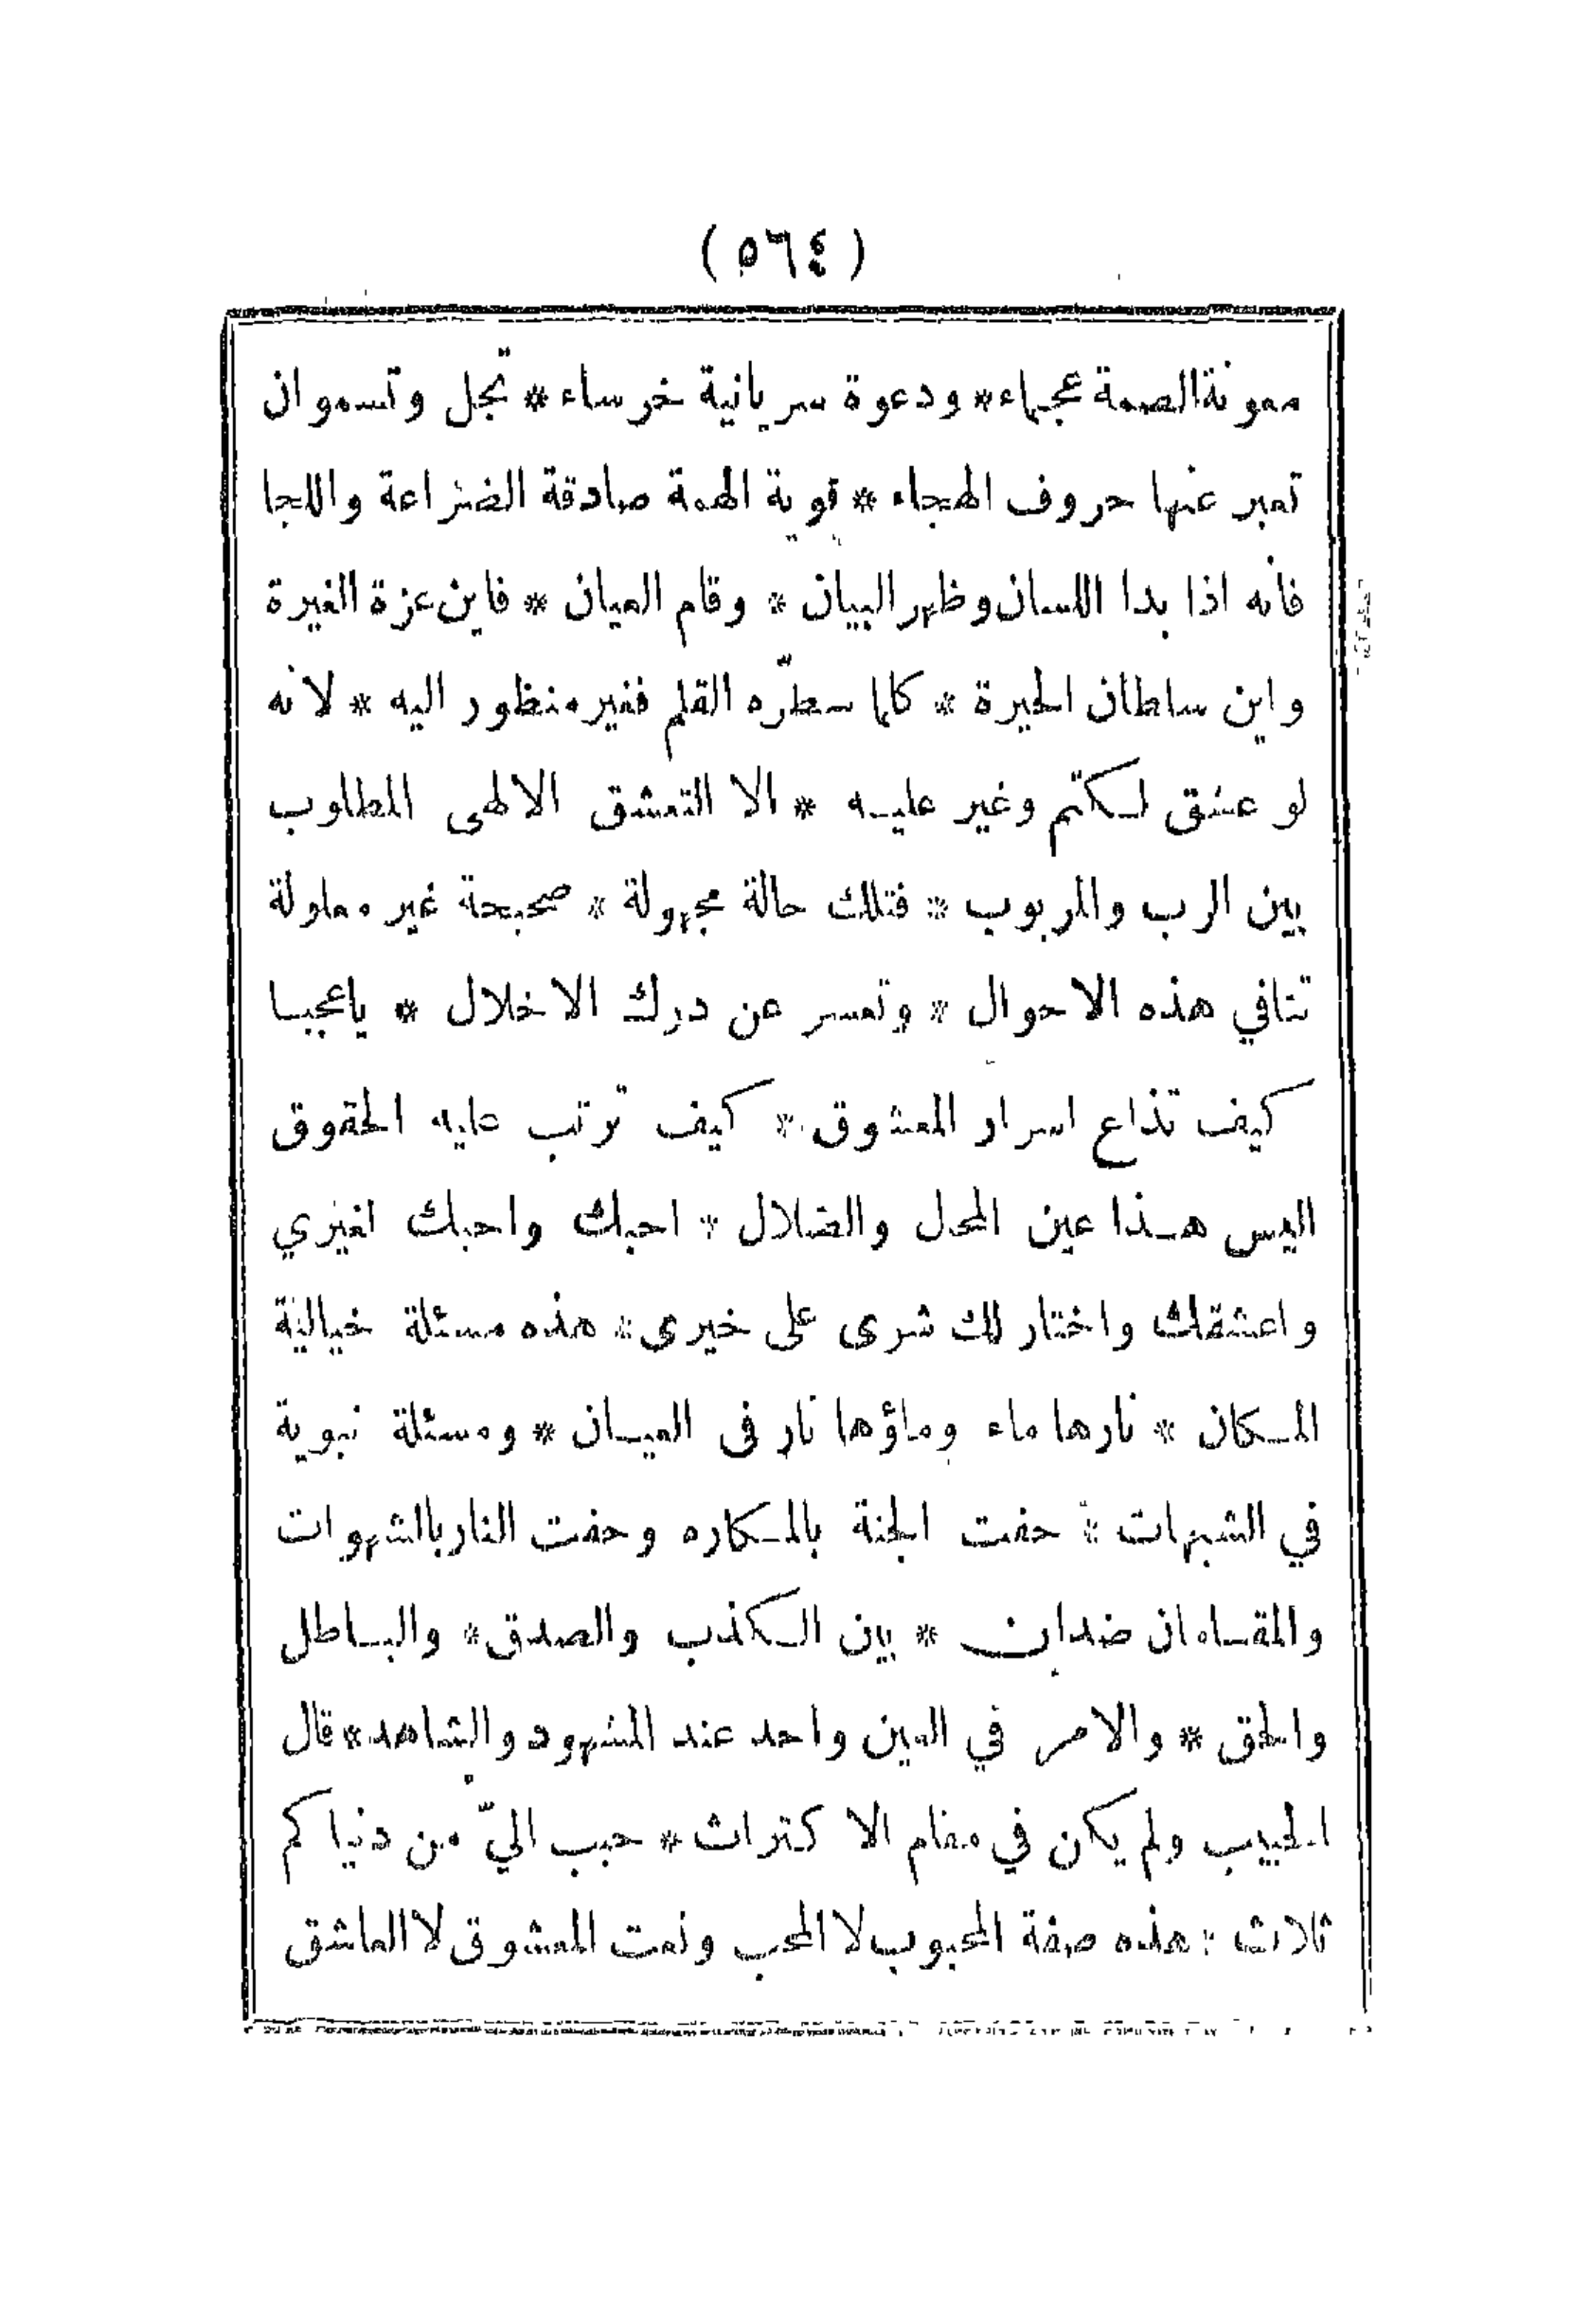 (٥٦٤)
معونة الصمة عجماء * ودعوة سريانية خرساء * تجلّ وتسمو ان
تعبر عنها حروف الهجاء * قوية الهمة صادقة الضراعة واللجا
فأنه اذا بدا اللسان وظهر البيان * وقام العيان * فاين عزة الغيرة
واين سلطان الحيرة * كلما سطّره القلم فغير منظور اليه * لانه
لو عشق لكتم وغير عليه * الا التعشق الالهى المطلوب
بين الرب والمربوب * فتلك حالة مجهولة * صحيحة غير معلولة
تنافي هذه الاحوال * وتعسر عن درك الاخلال * ياعجبا
كيف تذاع اسرار المعشوق * كيف ترتب عليه الحقوق
اليس هذا عين المحل والضلال * احبك واحبك لغيري
واعشقك واختار لك شرى على خيرى * هذه مسئلة خيالية
المكان * نارها ماء وماؤها نار فى العيان * ومسئلة نبوية
في الشبهات * حفت الجنة بالمكاره وحفت النار بالشهوات
والمقامان ضدان * بين الكذب والصدق * والباطل
والحق * والامر في العين واحد عند المشهود والشاهد * قال
الحبيب ولم يكن في مقام الاكتراث * حبب اليّ من دنياكم
ثلاث * هذه صفة المحبوب لا المحب ونعت المعشوق لا العاشق